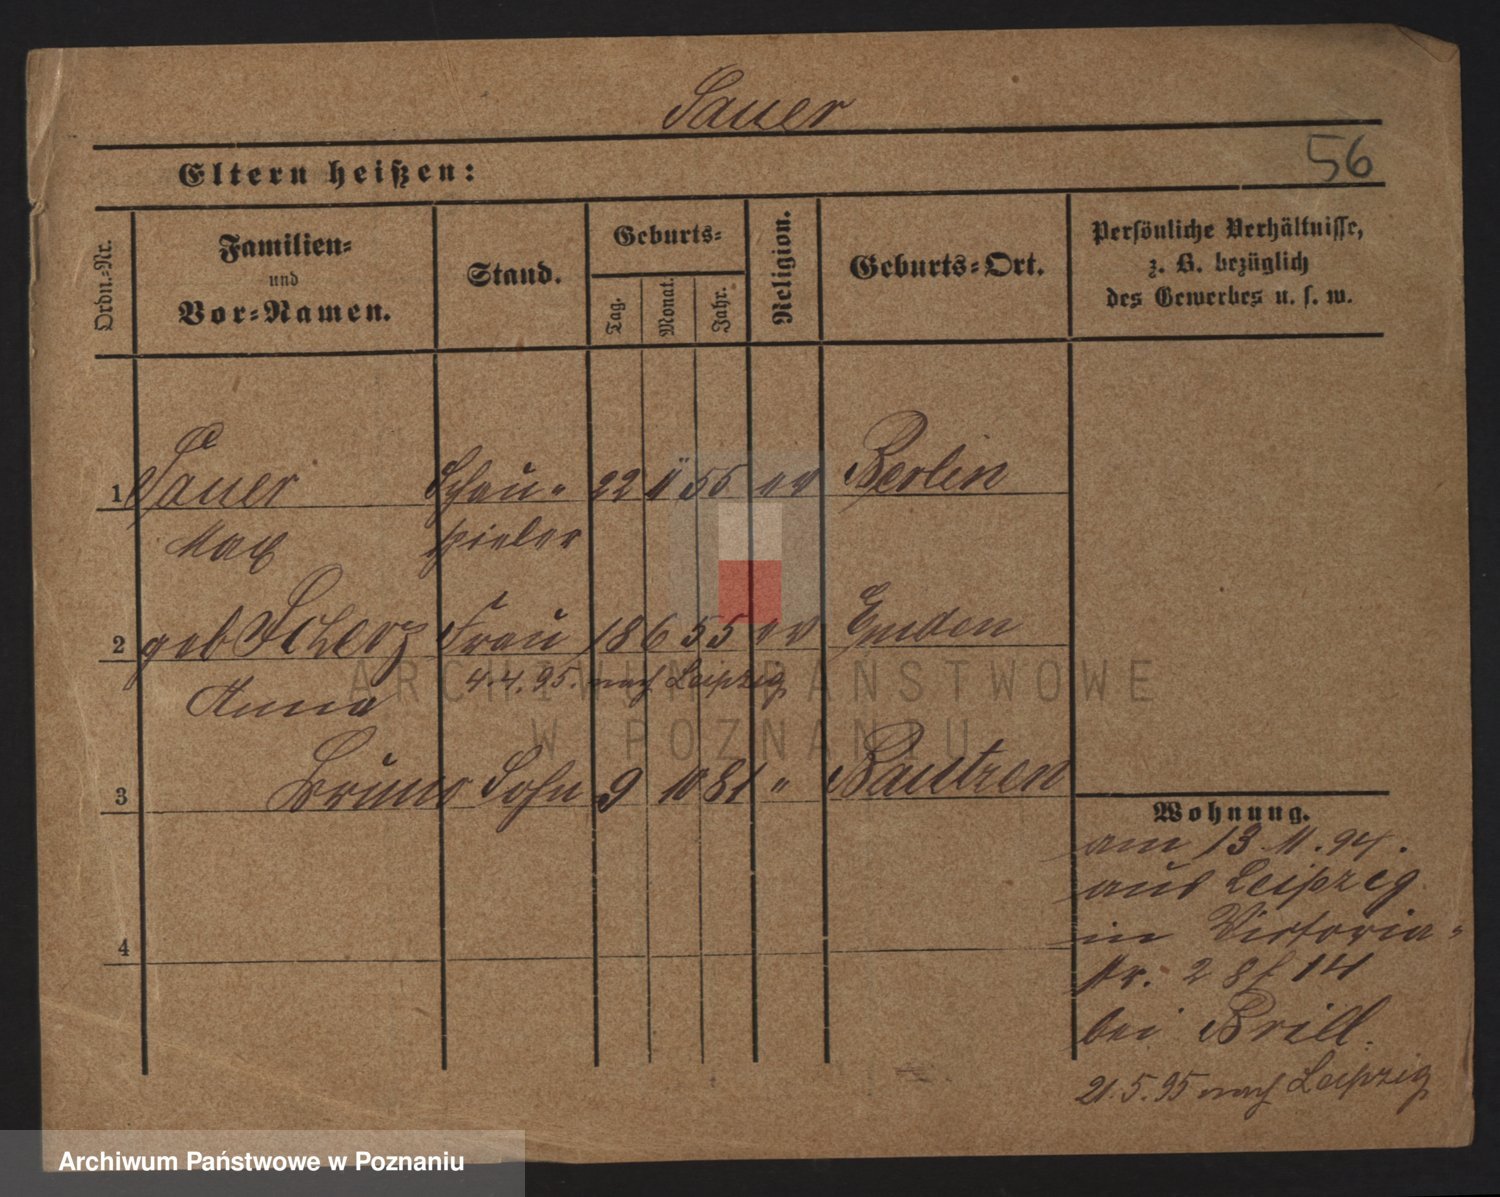 Sauer
56
Eltern heißen:
Ordn.-Nr.
Familien- und Vor-Namen.
Stand.
Geburts-
Tag.
Monat.
Jahr.
Religion.
Geburts-Ort.
Persönliche Verhältnisse,
z. B. bezüglich
des Gewerbes u. s. w.
1 Sauer Schau- 22 11 55 ev Berlin
Max spieler
2 geb Scherz Frau 18 6 55 ev Emden
Anna 4.4.95. nach Leipzig
3 Bruno Sohn 9 10 81 " Bautzen
4
Wohnung.
am 13.11.94.
aus Leipzig
in Victoria-
Nr. 28 14
bei Brill.
21.5.95 nach Leipzig
ARCHIWUM PAŃSTWOWE
W POZNANIU
Archiwum Państwowe w Poznaniu